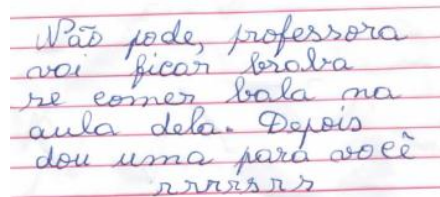 Não pode, professora
vai ficar braba
se comer bala na
aula dela. Depois
dou uma para você
rrrrsrs